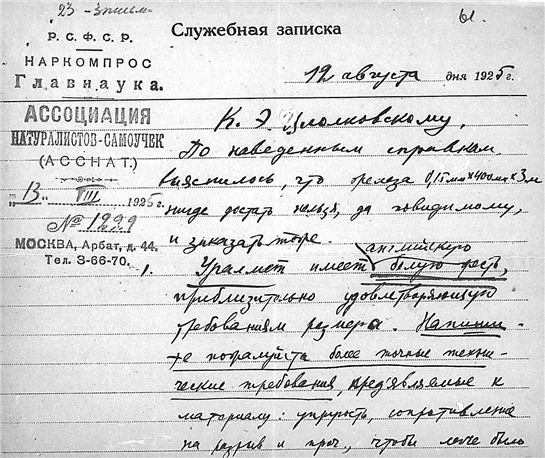 23 - 3 письм.
61.
Служебная записка
Р.С.Ф.С.Р.
НАРКОМПРОС
Главнаука.
АССОЦИАЦИЯ
НАТУРАЛИСТОВ-САМОУЧЕК
(АССНАТ.)
13. VIII 1925 г.
№ 1999
МОСКВА, Арбат, д. 44.
Тел. 3-66-70.
12 августа дня 1925 г.
К. Э. Циолковскому,
По наведенным справкам
выяснилось, что железа 0,15мм х 400мм х 3м
нигде достать нельзя, да повидимому,
и заказать тоже.
1. Уралмет имеет английскую белую жесть,
приблизительно удовлетворяющую
требованиям размера. Напиши-
те пожалуйста более точные техни-
ческие требования, предъявляемые к
материалу: упругость, сопротивление
на разрыв и проч., чтобы легче было